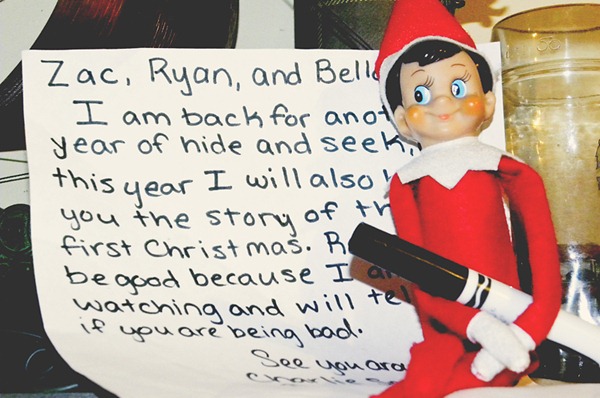 Zac, Ryan, and Bella
I am back for anot
year of hide and seek,
this year I will also
you the story of th
first Christmas. R
be good because I am
watching and will tel
if you are being bad.
See you aro
Charlie